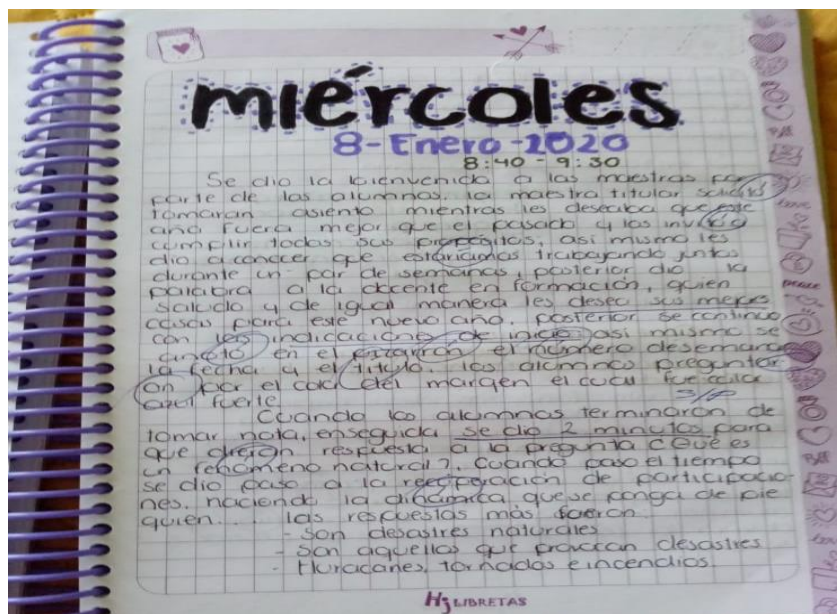 miércoles
8-Enero-2020
8:40 - 9:30
Se dio la bienvenida a las maestras por
parte de las alumnas, la maestra titular solicitó
tomaran asiento mientras les deseaba que este
año fuera mejor que el pasado y las invitó a
cumplir todos sus propósitos, asi mismo les
dio a conocer que estaríamos trabajando juntas
durante un par de semanas, posterior dio la
palabra a la docente en formación, quien
saludo y de igual manera les deseo sus mejores
cosas para este nuevo año. posterior se continuo
con las indicaciones de inicio asi mismo se
anotó en el pizarrón el número de semana
la fecha y el titulo. los alumnos pregunter
on por el color del margen el cual fue color
azul fuerte.
Cuando los alumnos terminarón de
tomar nota, enseguida se dio 2 minutos para
que dieron respuesta a la pregunta ¿Qué es
un fenómeno natural?, cuando paso el tiempo
se dio paso a la recuperación de participacio
nes, haciendo la dinámica que se ponga de pie
quien... las respuestas más fueron:
- Son desastres naturales
- Son aquellos que provocan desastres
- Huracanes, tornados e incendios.
Hj LIBRETAS